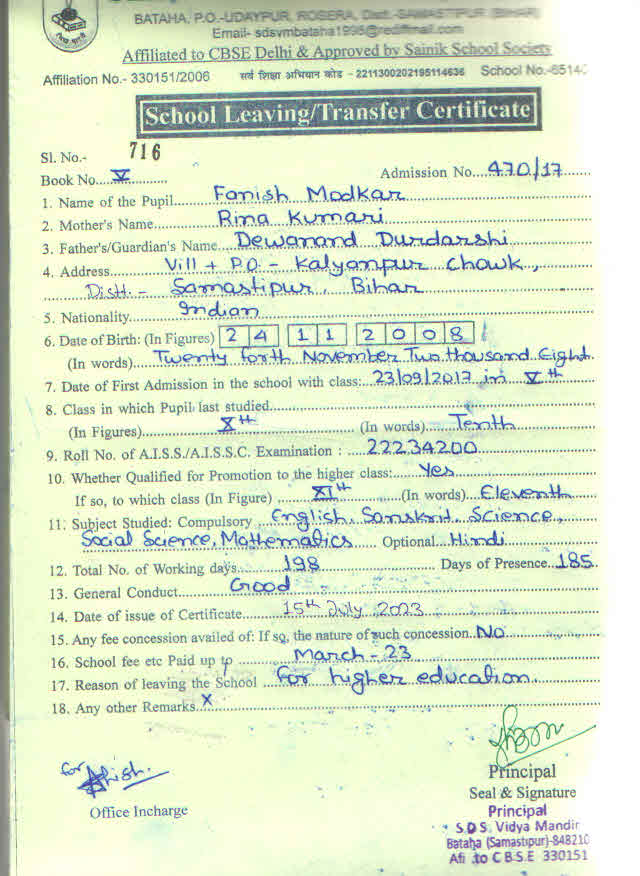 BATAHA, P.O.-UDAYPUR, ROSERA, Distt.-SAMASTIPUR (BIHAR)
Email- sdsvmbataha1995@rediffmail.com
Affiliated to CBSE Delhi & Approved by Sainik School Society
Affiliation No.- 330151/2006 सर्व शिक्षा अभियान कोड - 2211300202195114636 School No.-6514
School Leaving/Transfer Certificate
Sl. No.- 716
Book No. V Admission No. 470/17
1. Name of the Pupil Fanish Modkar
2. Mother's Name Rina Kumari
3. Father's/Guardian's Name Dewanand Durdarshi
4. Address Vill + P.O - Kalyanpur Chowk,
Distt.- Samastipur, Bihar
5. Nationality Indian
6. Date of Birth: (In Figures) 24 11 2008
(In words) Twenty forth November Two thousand Eight
7. Date of First Admission in the school with class: 23/09/2017 in Vth
8. Class in which Pupil last studied
(In Figures) Xth (In words) Tenth
9. Roll No. of A.I.S.S./A.I.S.S.C. Examination : 22234200
10. Whether Qualified for Promotion to the higher class: Yes
If so, to which class (In Figure) XIth (In words) Eleventh
11. Subject Studied: Compulsory English, Sanskrit, Science,
Social Science, Mathematics Optional Hindi
12. Total No. of Working days 198 Days of Presence 185
13. General Conduct Good
14. Date of issue of Certificate 15th July 2023
15. Any fee concession availed of: If so, the nature of such concession No
16. School fee etc Paid up to March-23
17. Reason of leaving the School for higher education.
18. Any other Remarks X
for
Office Incharge
Principal
Seal & Signature
Principal
S.D.S. Vidya Mandir
Bataha (Samastipur)-848210
Afi .to C B S.E 330151